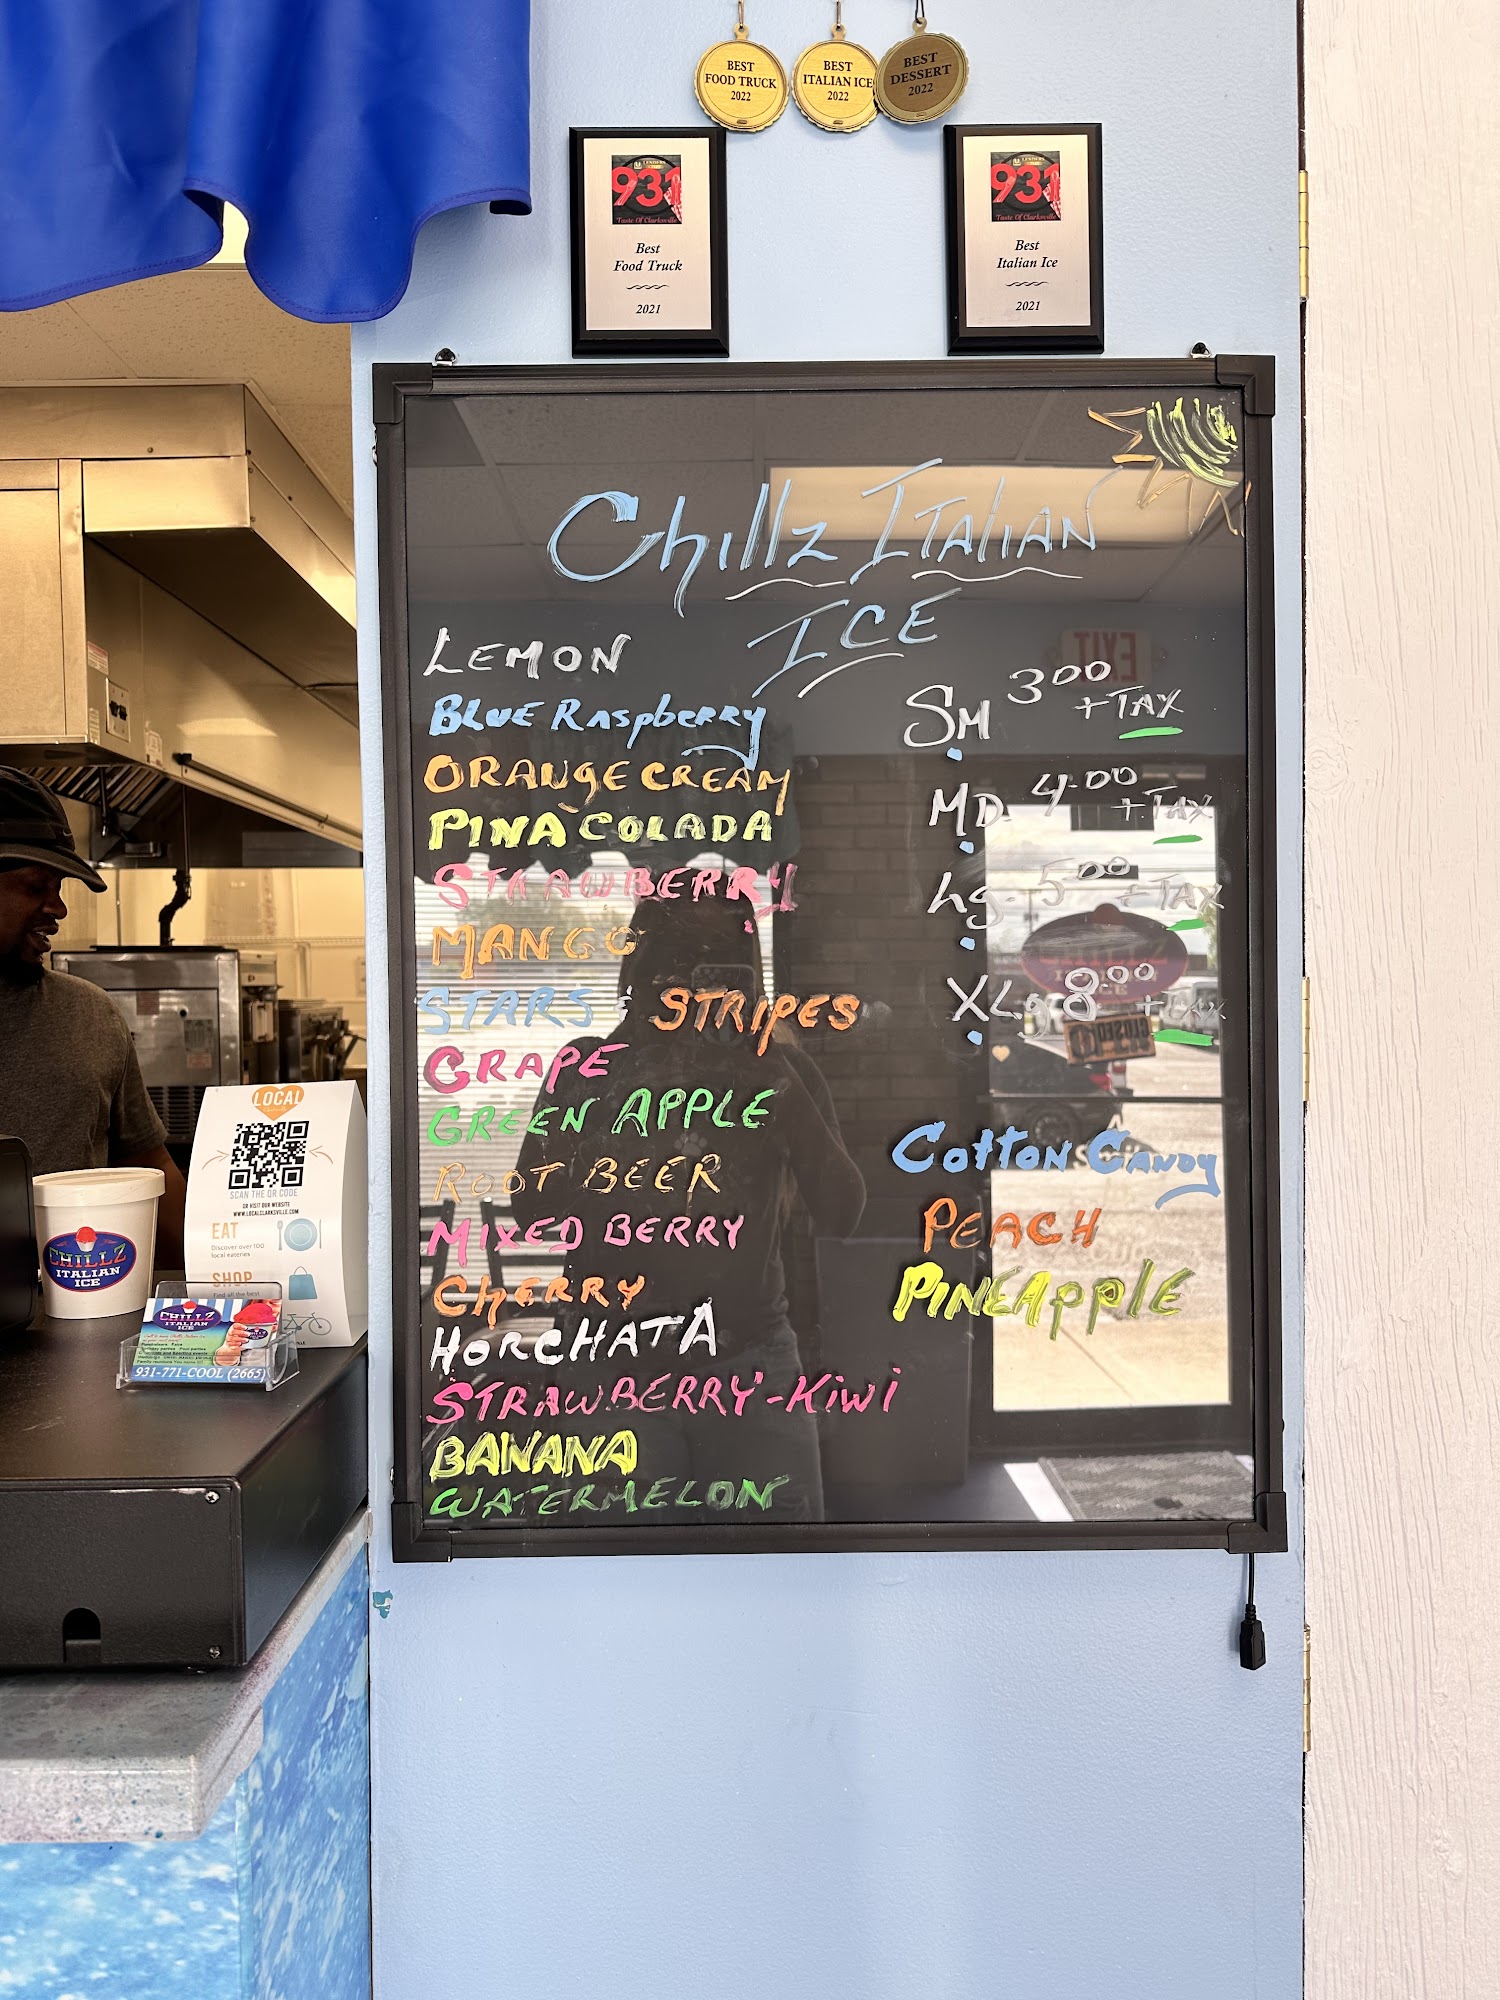 BEST
FOOD TRUCK
2022
BEST
ITALIAN ICE
2022
BEST
DESSERT
2022
931
Taste Of Clarksville
Best
Food Truck
2021
931
Taste Of Clarksville
Best
Italian Ice
2021
Chillz ITALIAN
ICE
LEMON
BLUE RaspbeRRy
ORANgE CREAM
PINA COLADA
STRAWBERRY
MANGO
STARS & STRIPES
GRAPE
GREEN APPLE
ROOT BEER
MIXED BERRY
ChERRY
HORCHATA
STRAWBERRY-KiWi
BANANA
WATERMELON
SM 3.00 + TAX
MD. 4.00 + TAX
Lg. 5.00 + TAX
XLg 8.00 + TAX
Cotton Candy
PEACH
PINEApplE
EXIT
LOCAL
SCAN THE QR CODE
OR VISIT OUR WEBSITE
WWW.LOCALCLARKSVILLE.COM
EAT
Discover over 100
local eateries
SHOP
Find all the best
CHILLZ
ITALIAN
ICE
CHILLZ
ITALIAN
ICE
931-771-COOL (2665)